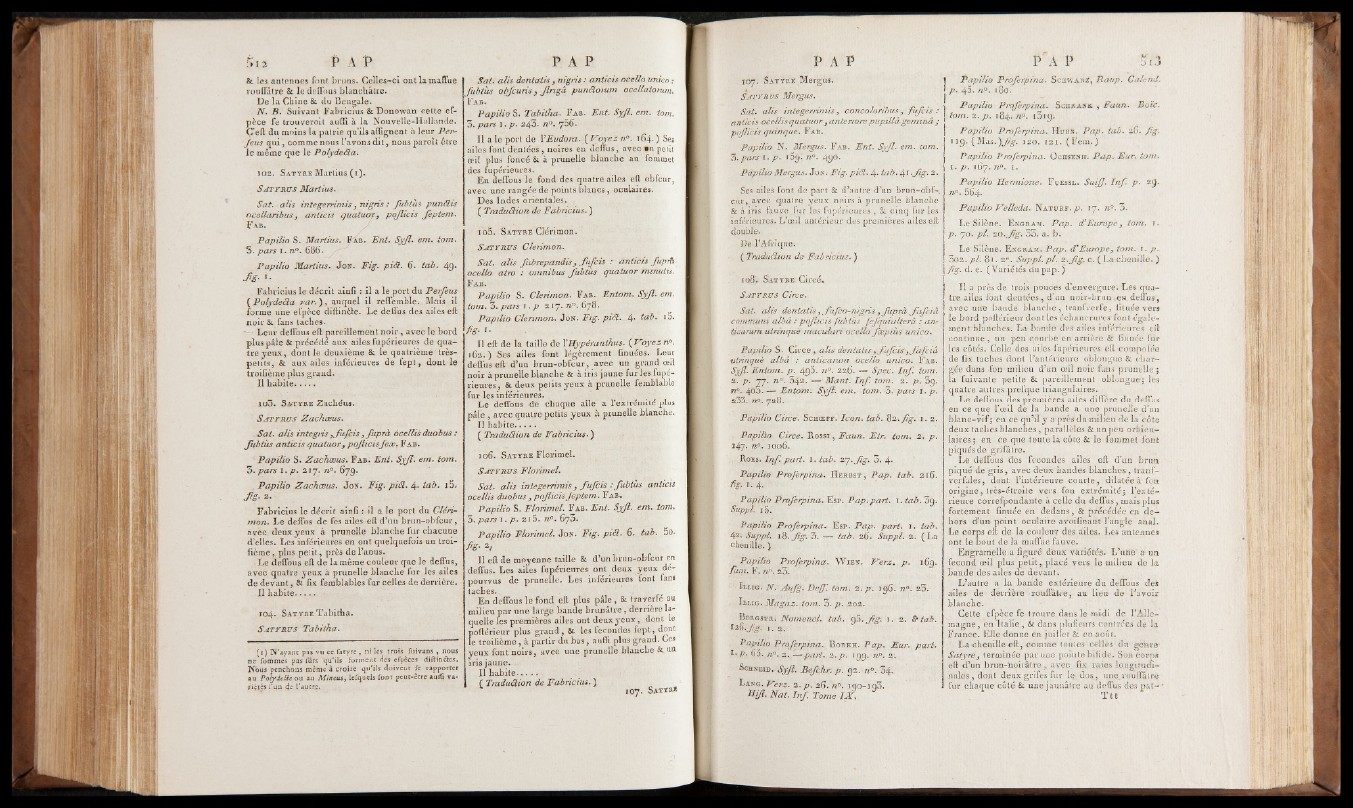 512 P A P
& les antennes font brons. Celles-ci ont la maffue
rouffâtre & le deffous blanchâtre.
De la Chine & du Bengale.
N. B. Suivant Fabricius & Donowan cette ef-
pèce fe trouveroit auffi à la Nouvelle-Hollande.
C'eft du moins la patrie qu'ils affignent à leur Per-
feus qui, comme nous l'avons dit, nous paroît être
le même que le Polydecta.
102. SATYRE Martius (1).
SATYRUS Martius.
Sat. alis integerrimis, nigris : fubtùs punctis
ocellaribus, anticis quatuor, pofticis feptem.
FAB.
Papilio S. Martius. FAB. Ent. Syft. em. tom.
3. pars 1. n°. 686.
Papilio Martius. JON. Fig. pict. 6. tab. 49.
fig. 1.
Fabricius le décrit ainfi : il a le port du Perfeus
(Polydecta var.), auquel il reffemble. Mais il
forme une efpèce diftincte. Le deffus des ailes eft
noir & fans taches.
Leur deffous eft pareillement noir, avec le bord
plus pâle & précédé aux ailes fupérieures de qua-
tre yeux, dont le deuxième & le quatrième très-
petits, & aux ailes inférieures de fept, dont le
troifième plus grand.
Il habite.....
103. SATYRE Zachéus.
SATYRUS Zachæus.
Sat. alis integris, fufcis, fuprà ocellis duobus :
fubtùs anticis quatuor, pofticis fex. FAB.
Papilio S. Zachæus. FAB. Ent. Syft. em. tom.
3. pars 1. p. 217. n°. 679.
Papilio Zachæus. JON. Fig. pict. 4. tab. 15.
fig. 2.
Fabricius le décrit ainfi : il a le port du Cléri-
mon. Le deffus de fes ailes eft d'un brun-obfcur,
avec deux yeux à prunelle blanche fur chacune
d'elles. Les inférieures en ont quelquefois un troi-
fième, plus petit, près de l'anus.
Le deffous eft de la même couleur que le deffus,
avec quatre yeux à prunelle blanche fur les ailes
de devant, & fix femblables fur celles de derrière.
Il habite.....
104. SATYRE Tabitha.
SATYRUS Tabitha.
(1) N'ayant pas vu ce fatyre, ni les trois fuivans, nous
ne fommes pas fûrs qu'ils forment des efpèces diftinctes.
Nous penchons même à croire qu'ils doivent fe rapporter
au Polydecte ou au Mineus, lefquels font peut-être auffi va-
riétés l'un de l'autre.
P A P
Sat. alis dentatis, nigris : anticis ocello unico :
fubtùs obfcuris, ftrigâ punctorum ocellatorum.
FAB.
Papilio S. Tabitha. FAB. Ent. Syft. em. tom.
3. pars 1. p. 243. n°. 756.
Il a le port de l'Eudora. (Voyez n°. 164.) Ses
ailes font dentées, noires en deffus, avec un petit
œil plus foncé & à prunelle blanche au fommet
des fupérieures.
En deffous le fond des quatre ailes eft obfcur,
avec une rangée de points blancs, oculaires.
Des Indes orientales.
(Traduction de Fabricius.)
105. SATYRE Clérimon.
SATYRUS Clerimon.
Sat. alis fubrepandis, fufcis : anticis fuprà
ocello atro : omnibus fubtùs quatuor minutis.
FAB.
Papilio S. Clerimon. FAB. Entom. Syft. em.
tom. 3. pars 1. p. 217. n°. 678.
Papilio Clerimon. JON. Fig. pict. 4. tab. 15.
fig. 1.
Il eft de la taille de l'Hypéranthus. (Voyez n°.
162.) Ses ailes font légèrement finuées. Leur
deffus eft d'un brun-obfcur, avec un grand œil
noir à prunelle blanche & à iris jaune fur les fupé-
rieures, & deux petits yeux à prunelle femblable
fur les inférieures.
Le deffous de chaque aîle a l'extrémité plus
pâle, avec quatre petits yeux à prunelle blanche.
Il habite.....
(Traduction de Fabricius.)
106. SATYRE Florimel.
SATYRUS Florimel.
Sat. alis integerrimis, fufcis : fubtùs anticis
ocellis duobus, pofticis feptem. FAB.
Papilio S. Florimel. FAB. Ent. Syft. em. tom.
3. pars 1. p. 215. n°. 673.
Papilio Florimel. JON. Fig. pict. 6. tab. 50.
fig. 2.
Il eft de moyenne taille & d'un brun-obfcur en
deffus. Les ailes fupérieures ont deux yeux dé-
pourvus de prunelle. Les inférieures font fans
taches.
En deffous le fond eft plus pâle, & traverfé au
milieu par une large bande brunâtre, derrière la-
quelle les premières ailes ont deux yeux, dont le
poftérieur plus grand, & les fecondes fept, dont
le troifième, à partir du bas, auffi plus grand. Ces
yeux font noirs, avec une prunelle blanche & un
iris jaune.
Il habite.....
(Traduction de Fabricius.)
107. SATYRE
P A P
107. SATYRE Mergus.
SATYRUS Mergus.
Sat. alis integerrimis, concoloribus, fufcis :
anticis ocellis quatuor, anteriore pupillâ geminâ ;
pofticis quinque. FAB.
Papilio N. Mergus. FAB. Ent. Syft. em. tom.
3. pars 1. p. 159. n°. 490.
Papilio Mergus. JON. Fig. pict. 4. tab. 41. fig. 2.
Ses ailes font de part & d'autre d'un brun-obf-
cur, avec quatre yeux noirs à prunelle blanche
& à iris fauve fur les fupérieures, & cinq fur les
inférieures. L'œil antérieur des premières ailes eft
double.
De l'Afrique.
(Traduction de Fabricius.)
108. SATYRE Circé.
SATYRUS Circe.
Sat. alis dentatis, fufco-nigris, fuprà fafciâ
communi albâ : pofticis fubtùs fefquialterâ : an-
ticarum utrinquè maculari ocello fæpiùs unico.
Papilio S. Circe, alis dentatis, fufcis, fafciâ
utrinquè albâ : anticarum ocello unico. FAB.
Syft. Entom. p. 495. n°. 226. — Spec. Inf. tom.
2. p. 77. n°. 342. — Mant. Inf. tom. 2. p. 39.
n°. 403. — Entom. Syft. em. tom. 3. pars 1. p.
233. n°. 728.
Papilio Circe. SCHÆFF. Icon. tab. 82. fig. 1. 2.
Papilio Circe. ROSSI, Faun. Etr. tom. 2. p.
147. n°. 1006.
ROES. Inf. part. 1. tab. 27. fig. 3. 4.
Papilio Proferpina. HERBST, Pap. tab. 216.
fig. 1. 4.
Papilio Proferpina. ESP. Pap. part. 1. tab. 39.
Suppl. 15.
Papilio Proferpina. ESP. Pap. part. 1. tab.
42. Suppl. 18. fig. 3. — tab. 26. Suppl. 2. (La
chenille.)
Papilio Proferpina. WIEN. Verz. p. 169.
fam. F. n°. 23.
ILLIG. N. Aufg. Deff. tom. 2. p. 196. n°. 23.
ILLIG. Magaz. tom. 3. p. 202.
BERGSTR. Nomencl. tab. 95. fig. 1. 2. & tab.
126. fig. 1. 2.
Papilio Proferpina. BORKH. Pap. Eur. part.
1. p. 65. n°. 2. — part. 2. p. 199. n°. 2.
SCHNEID. Syft. Befchr. p. 92. n°. 34.
LANG. Verz. 2. p. 26. n°. 190-193.
Hift. Nat. Inf. Tome IX.
P A P 513
Papilio Proferpina. SCHWARZ, Raup. Calend.
p. 45. n°. 180.
Papilio Proferpina. SCHRANK, Faun. Boïc.
tom. 2. p. 184. n°. 1319.
Papilio Proferpina. HUBN. Pap. tab. 26. fig.
119. (Mas.) fig. 120. 121. (Fem.)
Papilio Proferpina. OCHSENH. Pap. Eur. tom.
1. p. 167. n°. 1.
Papilio Hermione. FUESSL. Suiff. Inf. p. 29.
n°. 564.
Papilio Velleda. NATURF. p. 17. n°. 3.
Le Silène. ENGRAM. Pap. d'Europe, tom. 1.
p. 70. pl. 20. fig. 33. a. b.
Le Silène. ENGRAM. Pap. d'Europe, tom. 1. p.
302. pl. 81. 2e. Suppl. pl. 2. fig. c. (La chenille.)
fig. d. e. (Variétés du pap.)
Il a près de trois pouces d'envergure. Les qua-
tre ailes font dentées, d'un noir-brun en deffus,
avec une bande blanche, tranfverfe, fituée vers
le bord poftérieur dont les échancrures font égale-
ment blanches. La bande des ailes inférieures eft
continue, un peu courbe en arrière & finuée fur
les côtés. Celle des ailes fupérieures eft compofée
de fix taches dont l'antérieure oblongue & char-
gée dans fon milieu d'un œil noir fans prunelle ;
la fuivante petite & pareillement oblongue ; les
quatre autres prefque triangulaires.
Le deffous des premières ailes diffère du deffus
en ce que l'œil de la bande a une prunelle d'un
blanc-vif ; en ce qu'il y a près du milieu de la côte
deux taches blanches, parallèles & un peu orbicu-
laires ; en ce que toute la côte & le fommet font
piqués de grifâtre.
Le deffous des fecondes ailes eft d'un brun
piqué de gris, avec deux bandes blanches, tranf-
verfales, dont l'intérieure courte, dilatée à fon
origine, très-étroite vers fon extrémité ; l'exté-
rieure correfpondante à celle du deffus, mais plus
fortement finuée en dedans, & précédée en de-
hors d'un point oculaire avoifinant l'angle anal.
Le corps eft de la couleur des ailes. Les antennes
ont le bout de la maffue fauve.
Engramelle a figuré deux variétés. L'une a un
fecond œil plus petit, placé vers le milieu de la
bande des ailes de devant.
L'autre a la bande extérieure du deffous des
ailes de derrière rouffâtre, au lieu de l'avoir
blanche.
Cette efpèce fe trouve dans le midi de l'Alle-
magne, en Italie, & dans plufieurs contrées de la
France. Elle donne en juillet & en août.
La chenille eft, comme toutes celles du genre
Satyre, terminée par une pointe bifide. Son corps
eft d'un brun-noirâtre, avec fix raies longitudi-
nales, dont deux grifes fur le dos, une rouffâtre
fur chaque côté & une jaunâtre au deffus des pat-
T t t